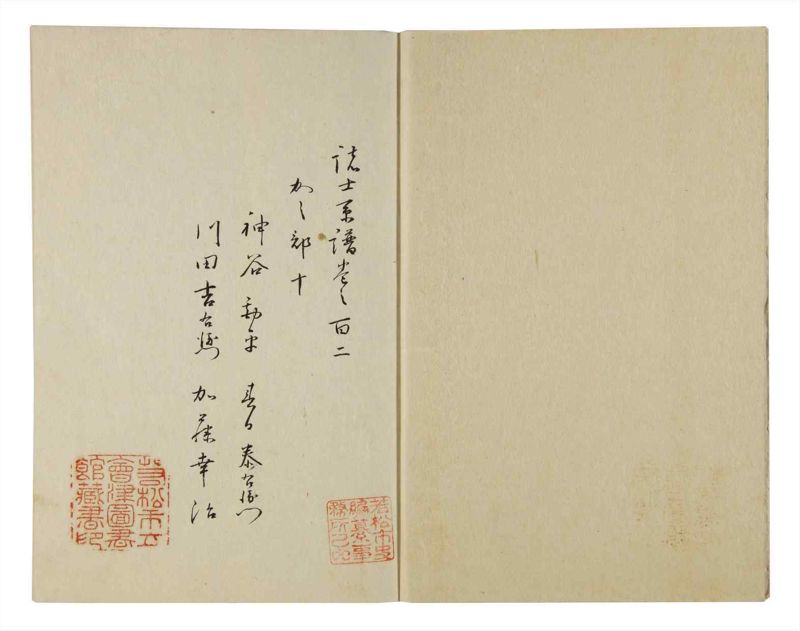 諸士系譜巻之百二
かノ部十
神谷勘平 春日泰右衛門
川田吉右衛門 加藤幸治
若松市史
編纂事
務所之印
若松市立
會津圖書
館藏書印